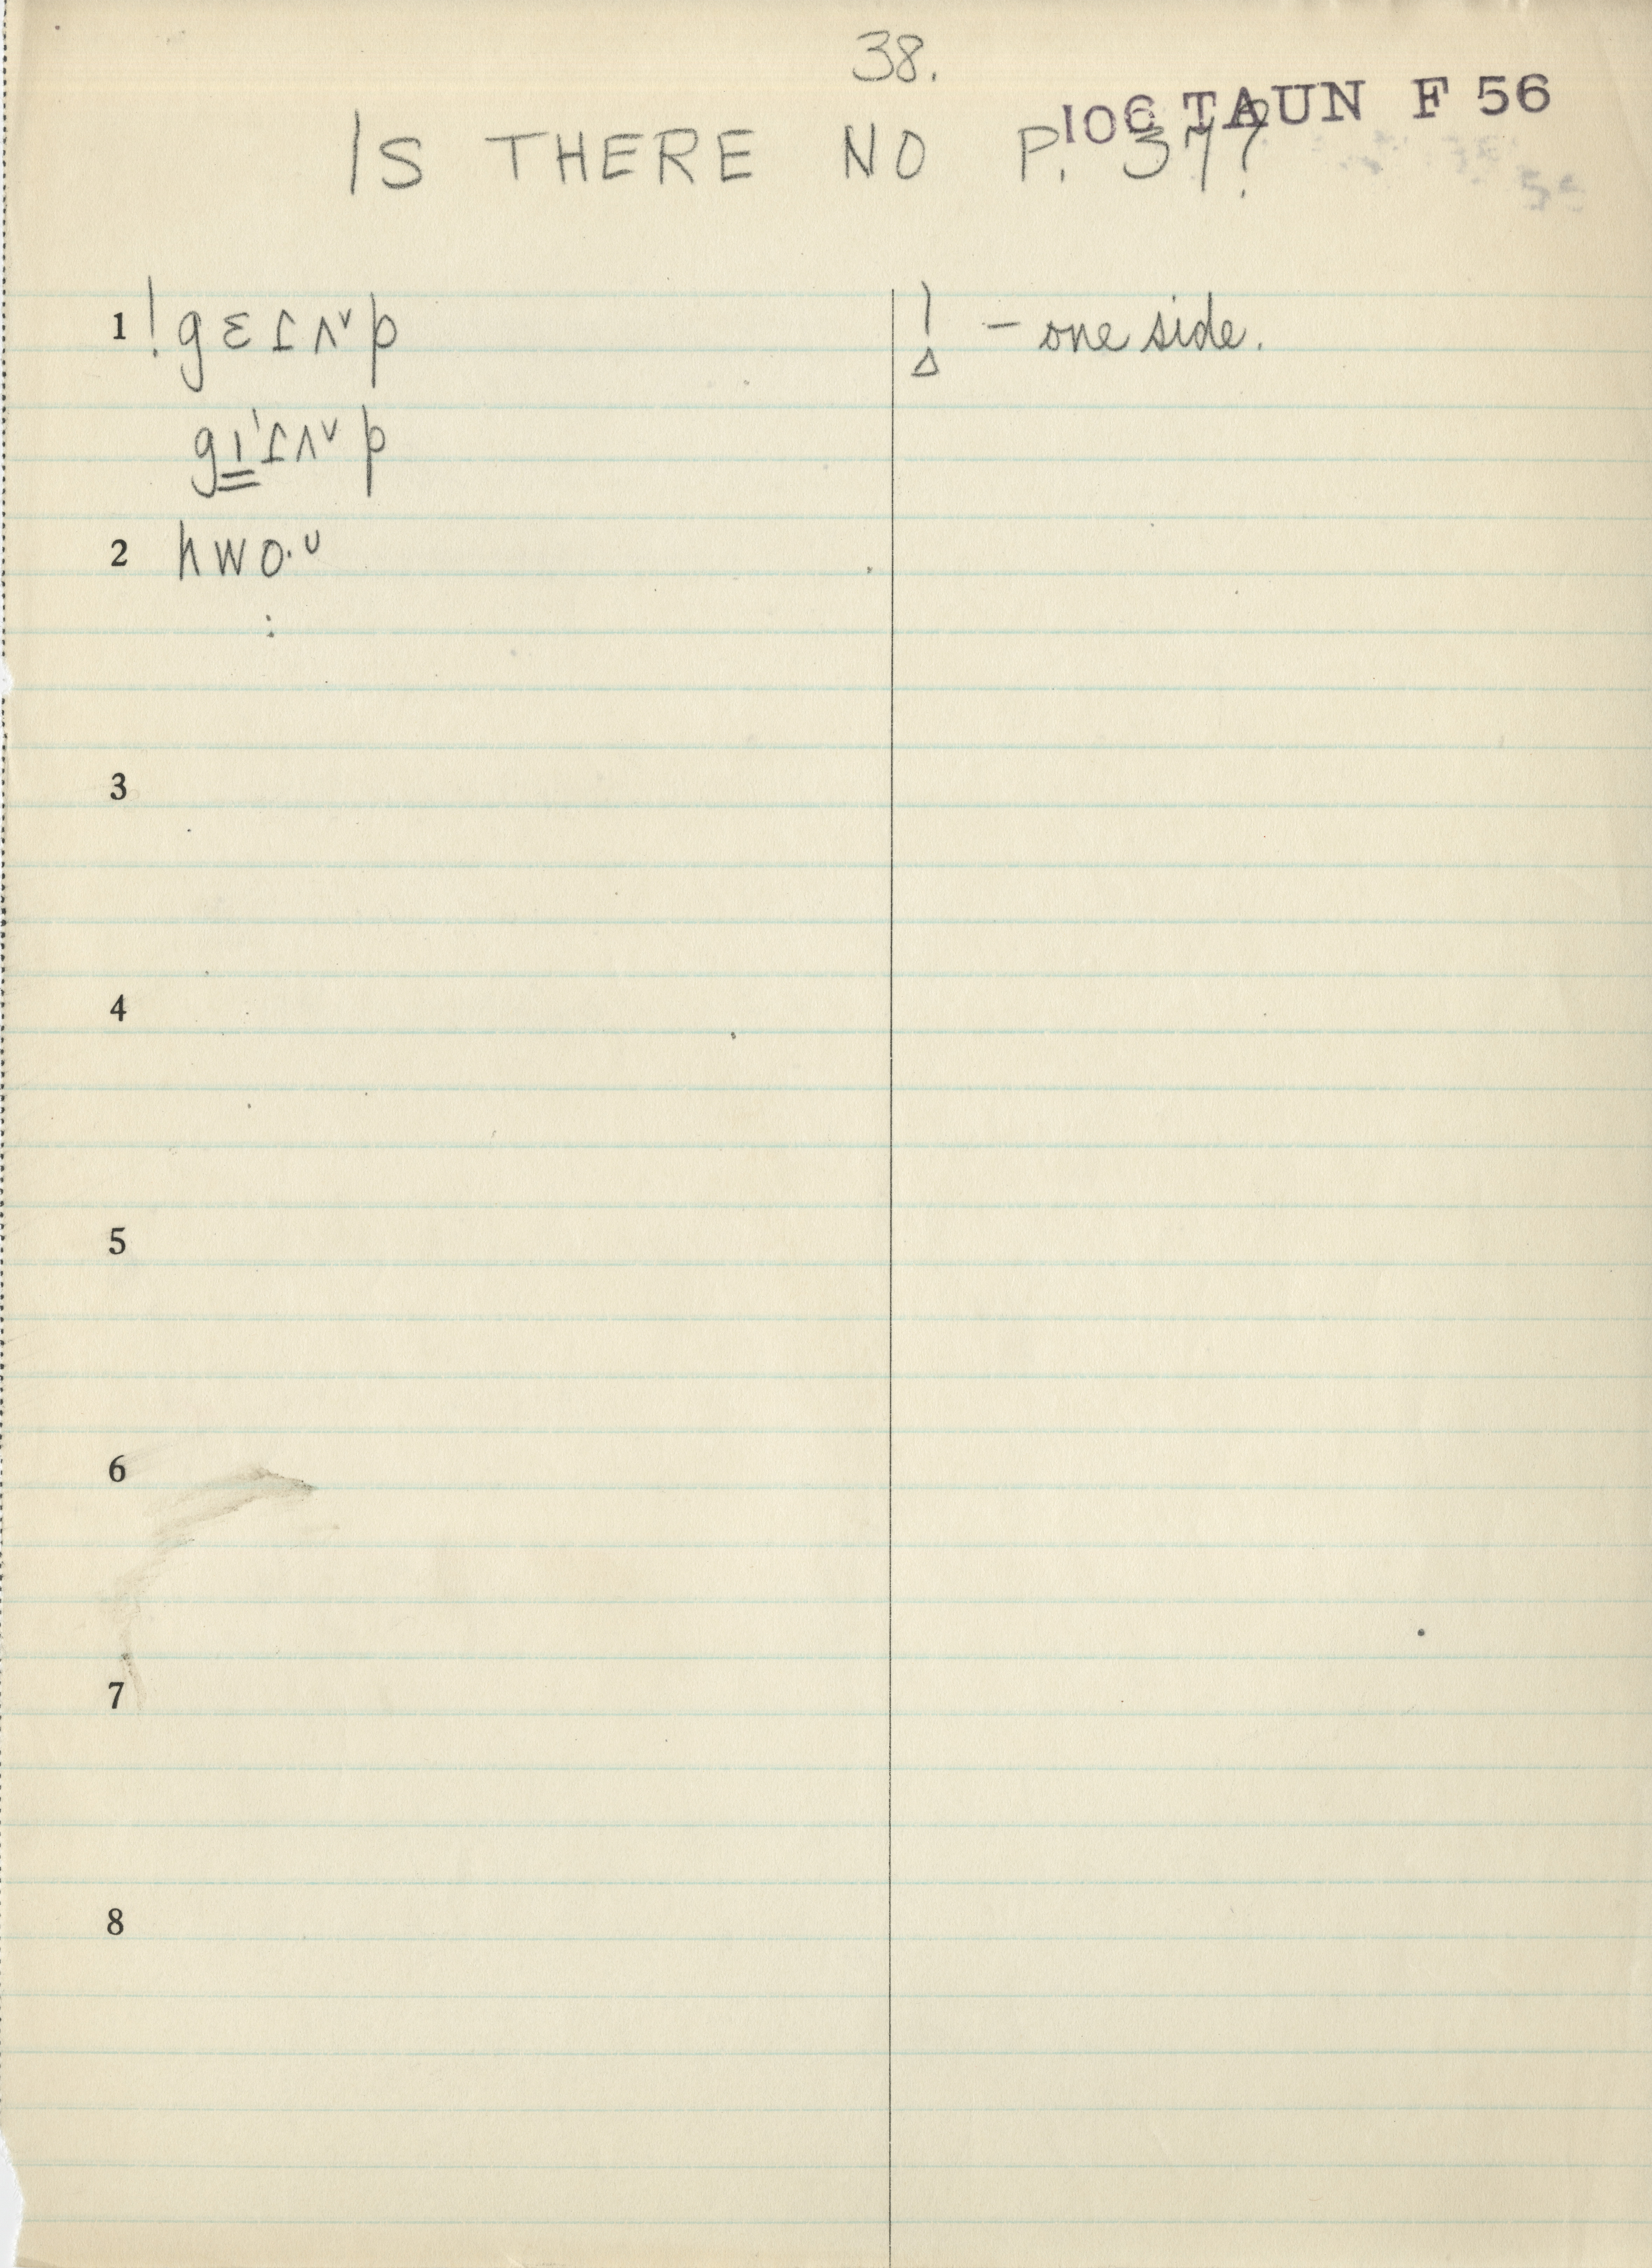 38.
106 TAUN F 56
IS THERE NO P. 37?
1 !gɛɾʌ˅p
! – one side.
gɪ̳ˈɾʌ˅p
2 hwo·ᴜ
3
4
5
6
7
8